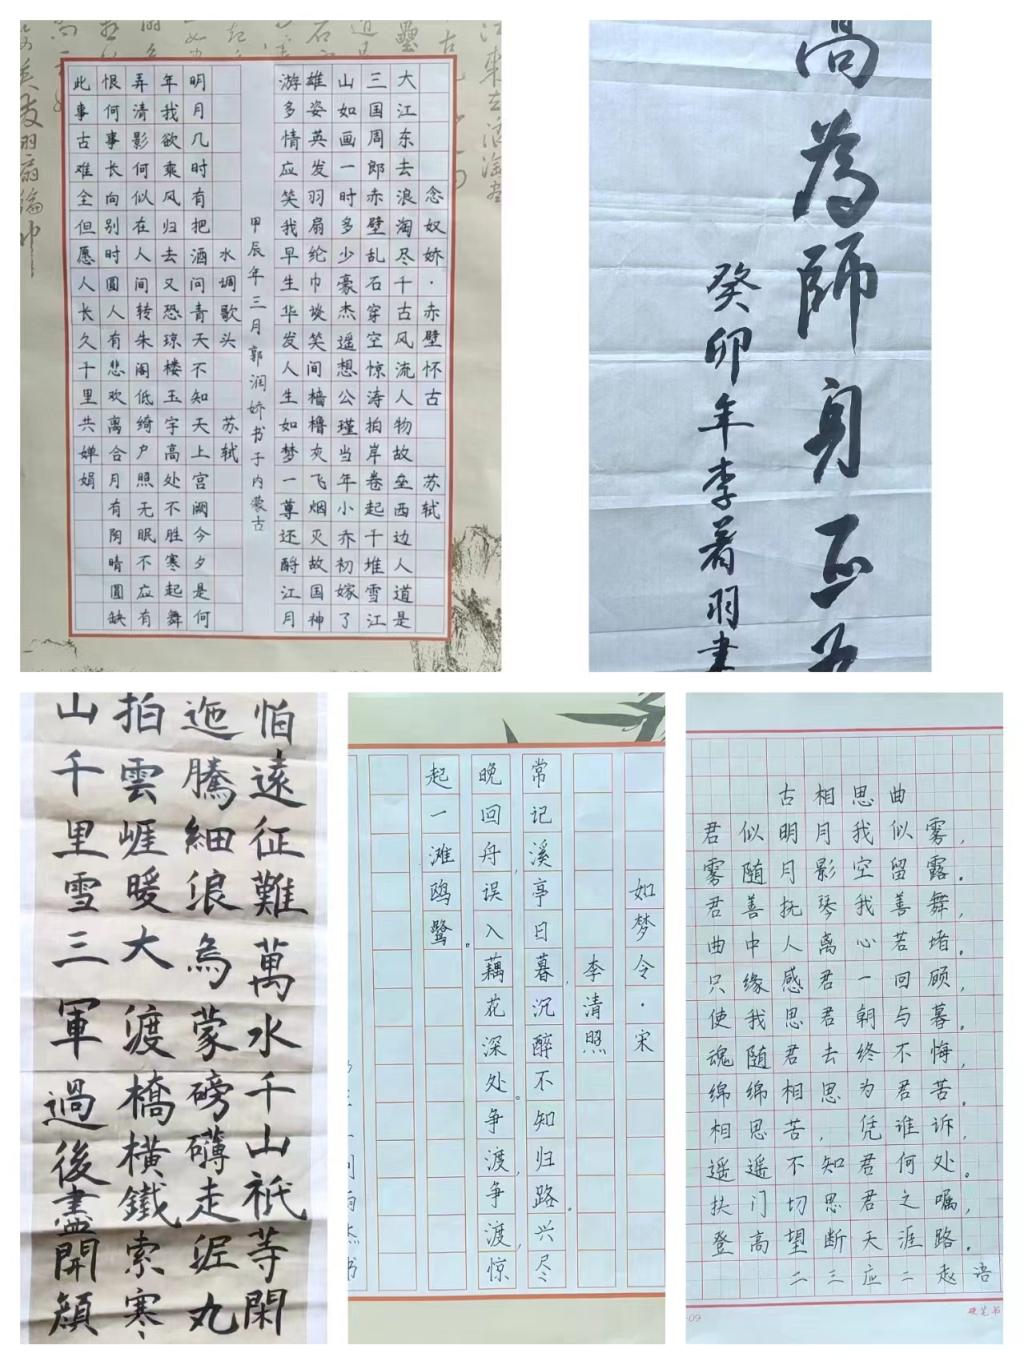 念奴娇·赤壁怀古 苏轼
大江东去浪淘尽千古风流人物故垒西边人道是
三国周郎赤壁乱石穿空惊涛拍岸卷起千堆雪江
山如画一时多少豪杰遥想公瑾当年小乔初嫁了
雄姿英发羽扇纶巾谈笑间樯橹灰飞烟灭故国神
游多情应笑我早生华发人生如梦一尊还酹江月
甲辰年三月郭润娇书于内蒙古
水调歌头 苏轼
明月几时有把酒问青天不知天上宫阙今夕是何
年我欲乘风归去又恐琼楼玉宇高处不胜寒起舞
弄清影何似在人间转朱阁低绮户照无眠不应有
恨何事长向别时圆人有悲欢离合月有阴晴圆缺
此事古难全但愿人长久千里共婵娟
高为師身正为
癸卯年李若羽書
怕遠征難萬水千山祇等閑
迤騰細浪烏蒙磅礴走泥丸
拍雲崕暖大渡橋橫鐵索寒
山千里雪三軍過後盡開顔
如梦令·宋
李清照
常记溪亭日暮,沉醉不知归路。兴尽
晚回舟,误入藕花深处。争渡,争渡,惊
起一滩鸥鹭。
古相思曲
君似明月我似雾,
雾随月影空留露。
君善抚琴我善舞,
曲中人离心若堵。
只缘感君一回顾,
使我思君朝与暮。
魂随君去终不悔,
绵绵相思为君苦。
相思苦,凭谁诉,
遥遥不知君何处。
扶门切思君之嘱,
登高望断天涯路。
二三应二赵语
硬笔书